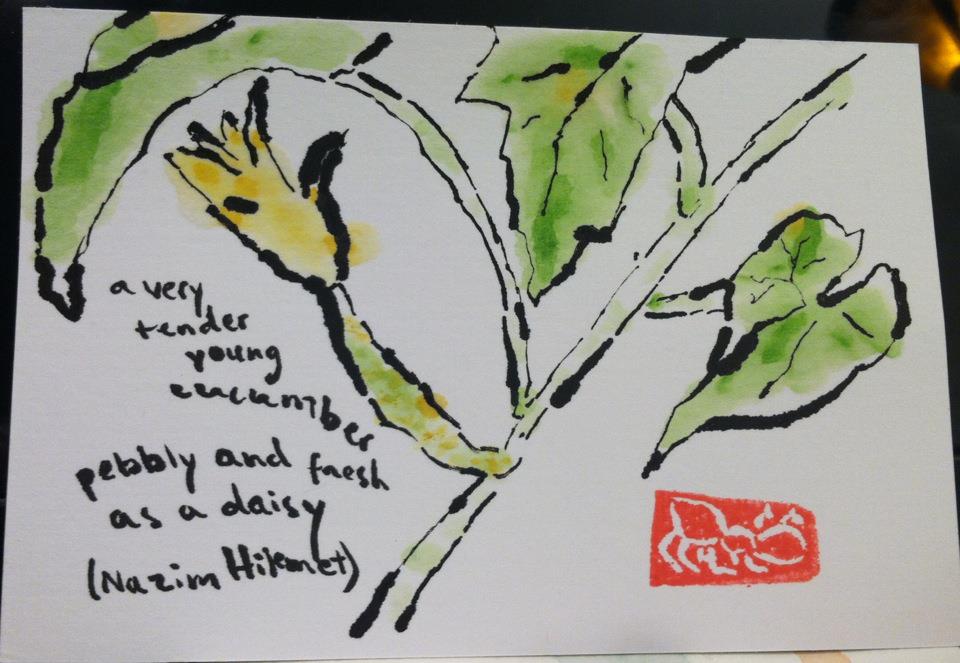 a very
tender
young
cucumber
pebbly and fresh
as a daisy
(Nazim Hikmet)